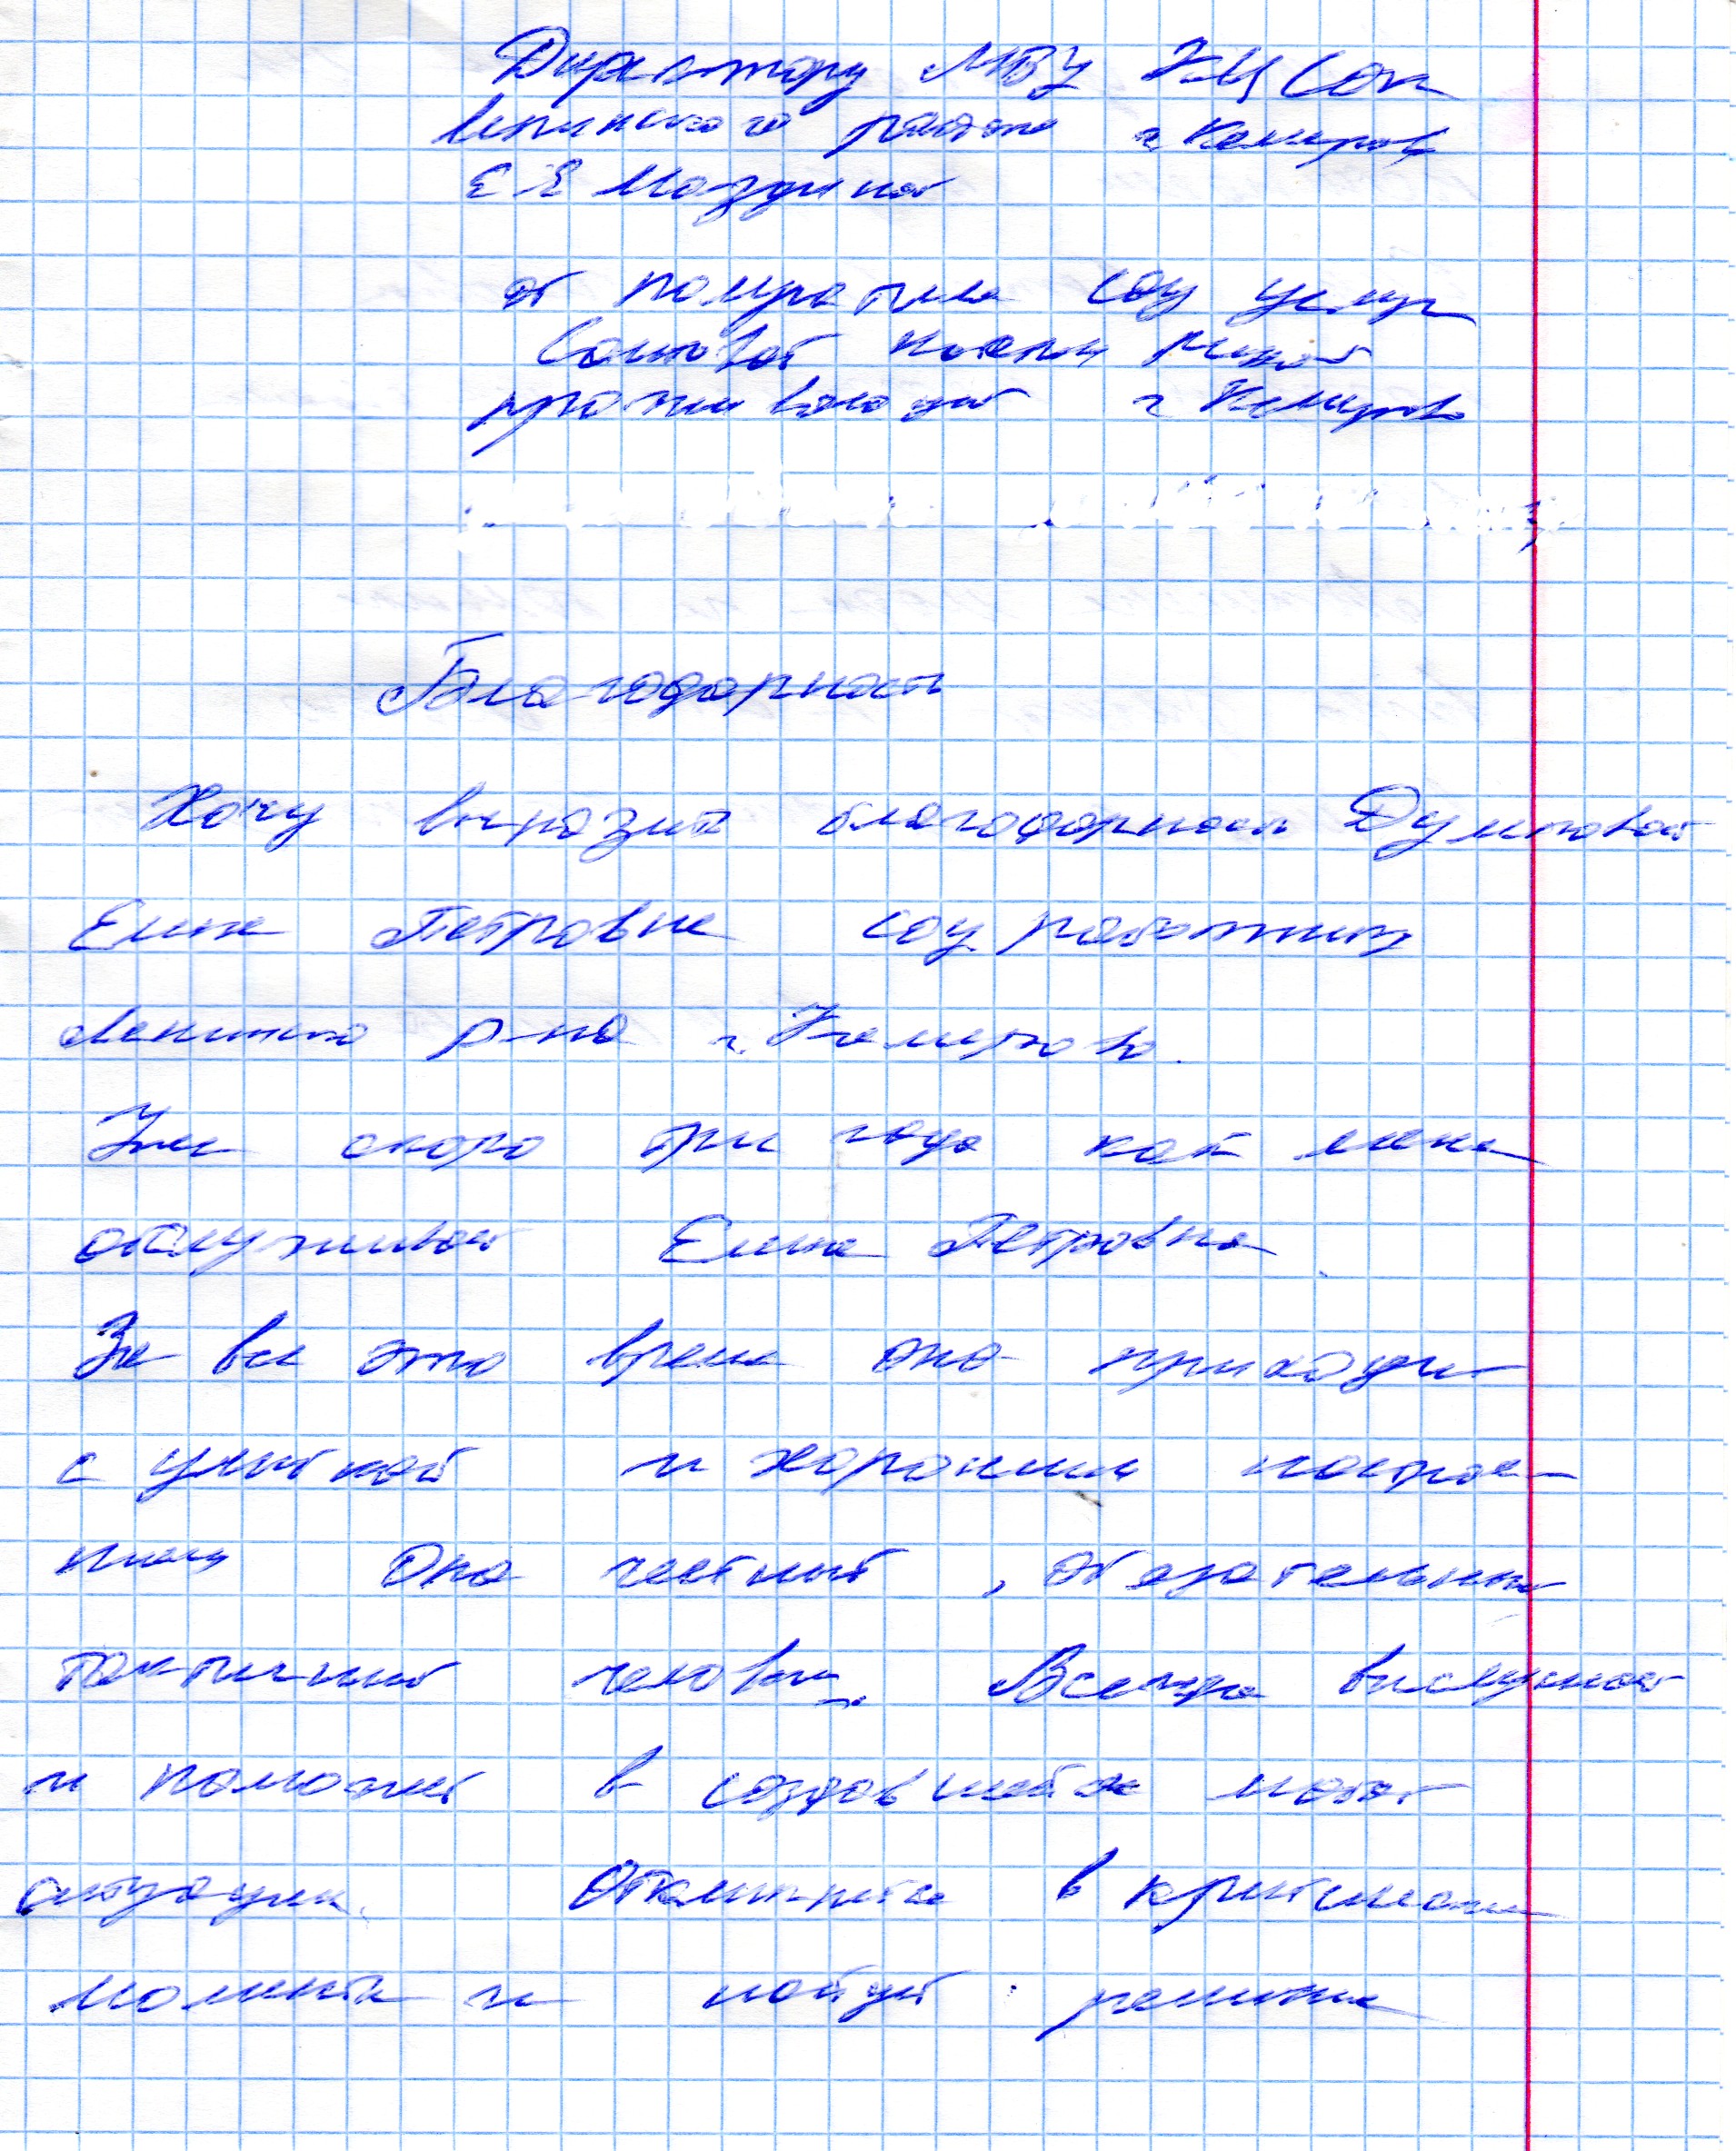 Директору МБУ КЦСОН
Ленинского района г Кемерово
от получателя соц услуг
проживающей г Кемерово
Благодарность
Хочу выразить благодарность
Елене Петровне соц работнику
Ленинского р-на г. Кемерово.
Уже скоро три года как меня
обслуживает Елена Петровна
За все это время она приходит
с улыбкой и хорошим настрое-
нием Она честный, обязательный
тактичный человек. Всегда выслушает
и поможет в создавшейся моей
ситуации. Откликнется в критический
момент и найдет решение